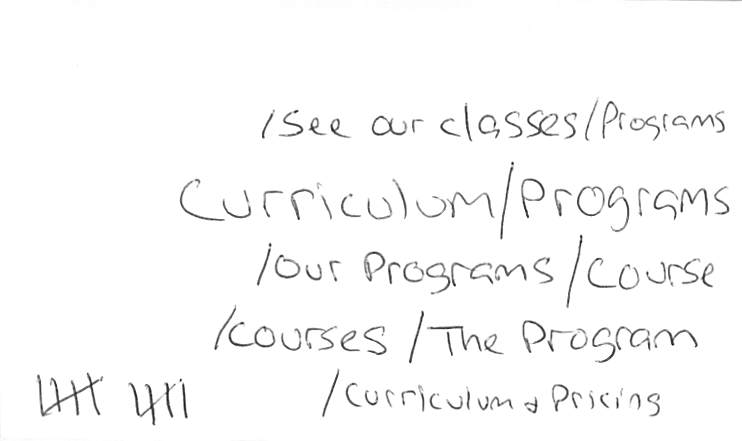 /See our classes/Programs
Curriculum/Programs
/our Programs/Course
/courses/The Program
/Curriculum & Pricing